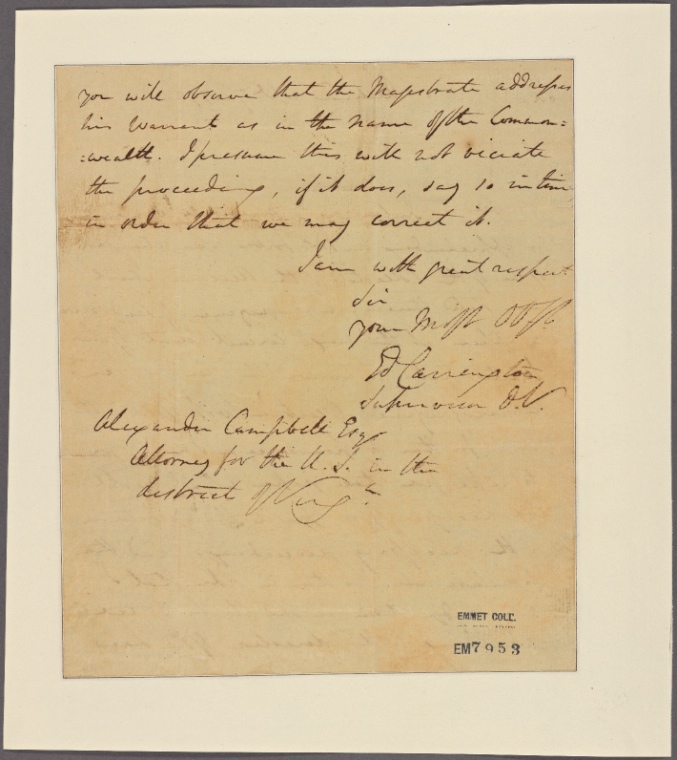 you will observe that the Magistrate addresses
his Warrant as in the name of the Common=
=wealth. I presume this will not viciate
the proceeding, if it does, say so in time
in order that we may correct it.
I am with great respect
Sir
your Most Obt
Ed Carrington
Supervisor D.V.
Alexander Campbell Esq
Attorney for the U.S. in the
district of Virga.
EMMET COLL.
EM7953